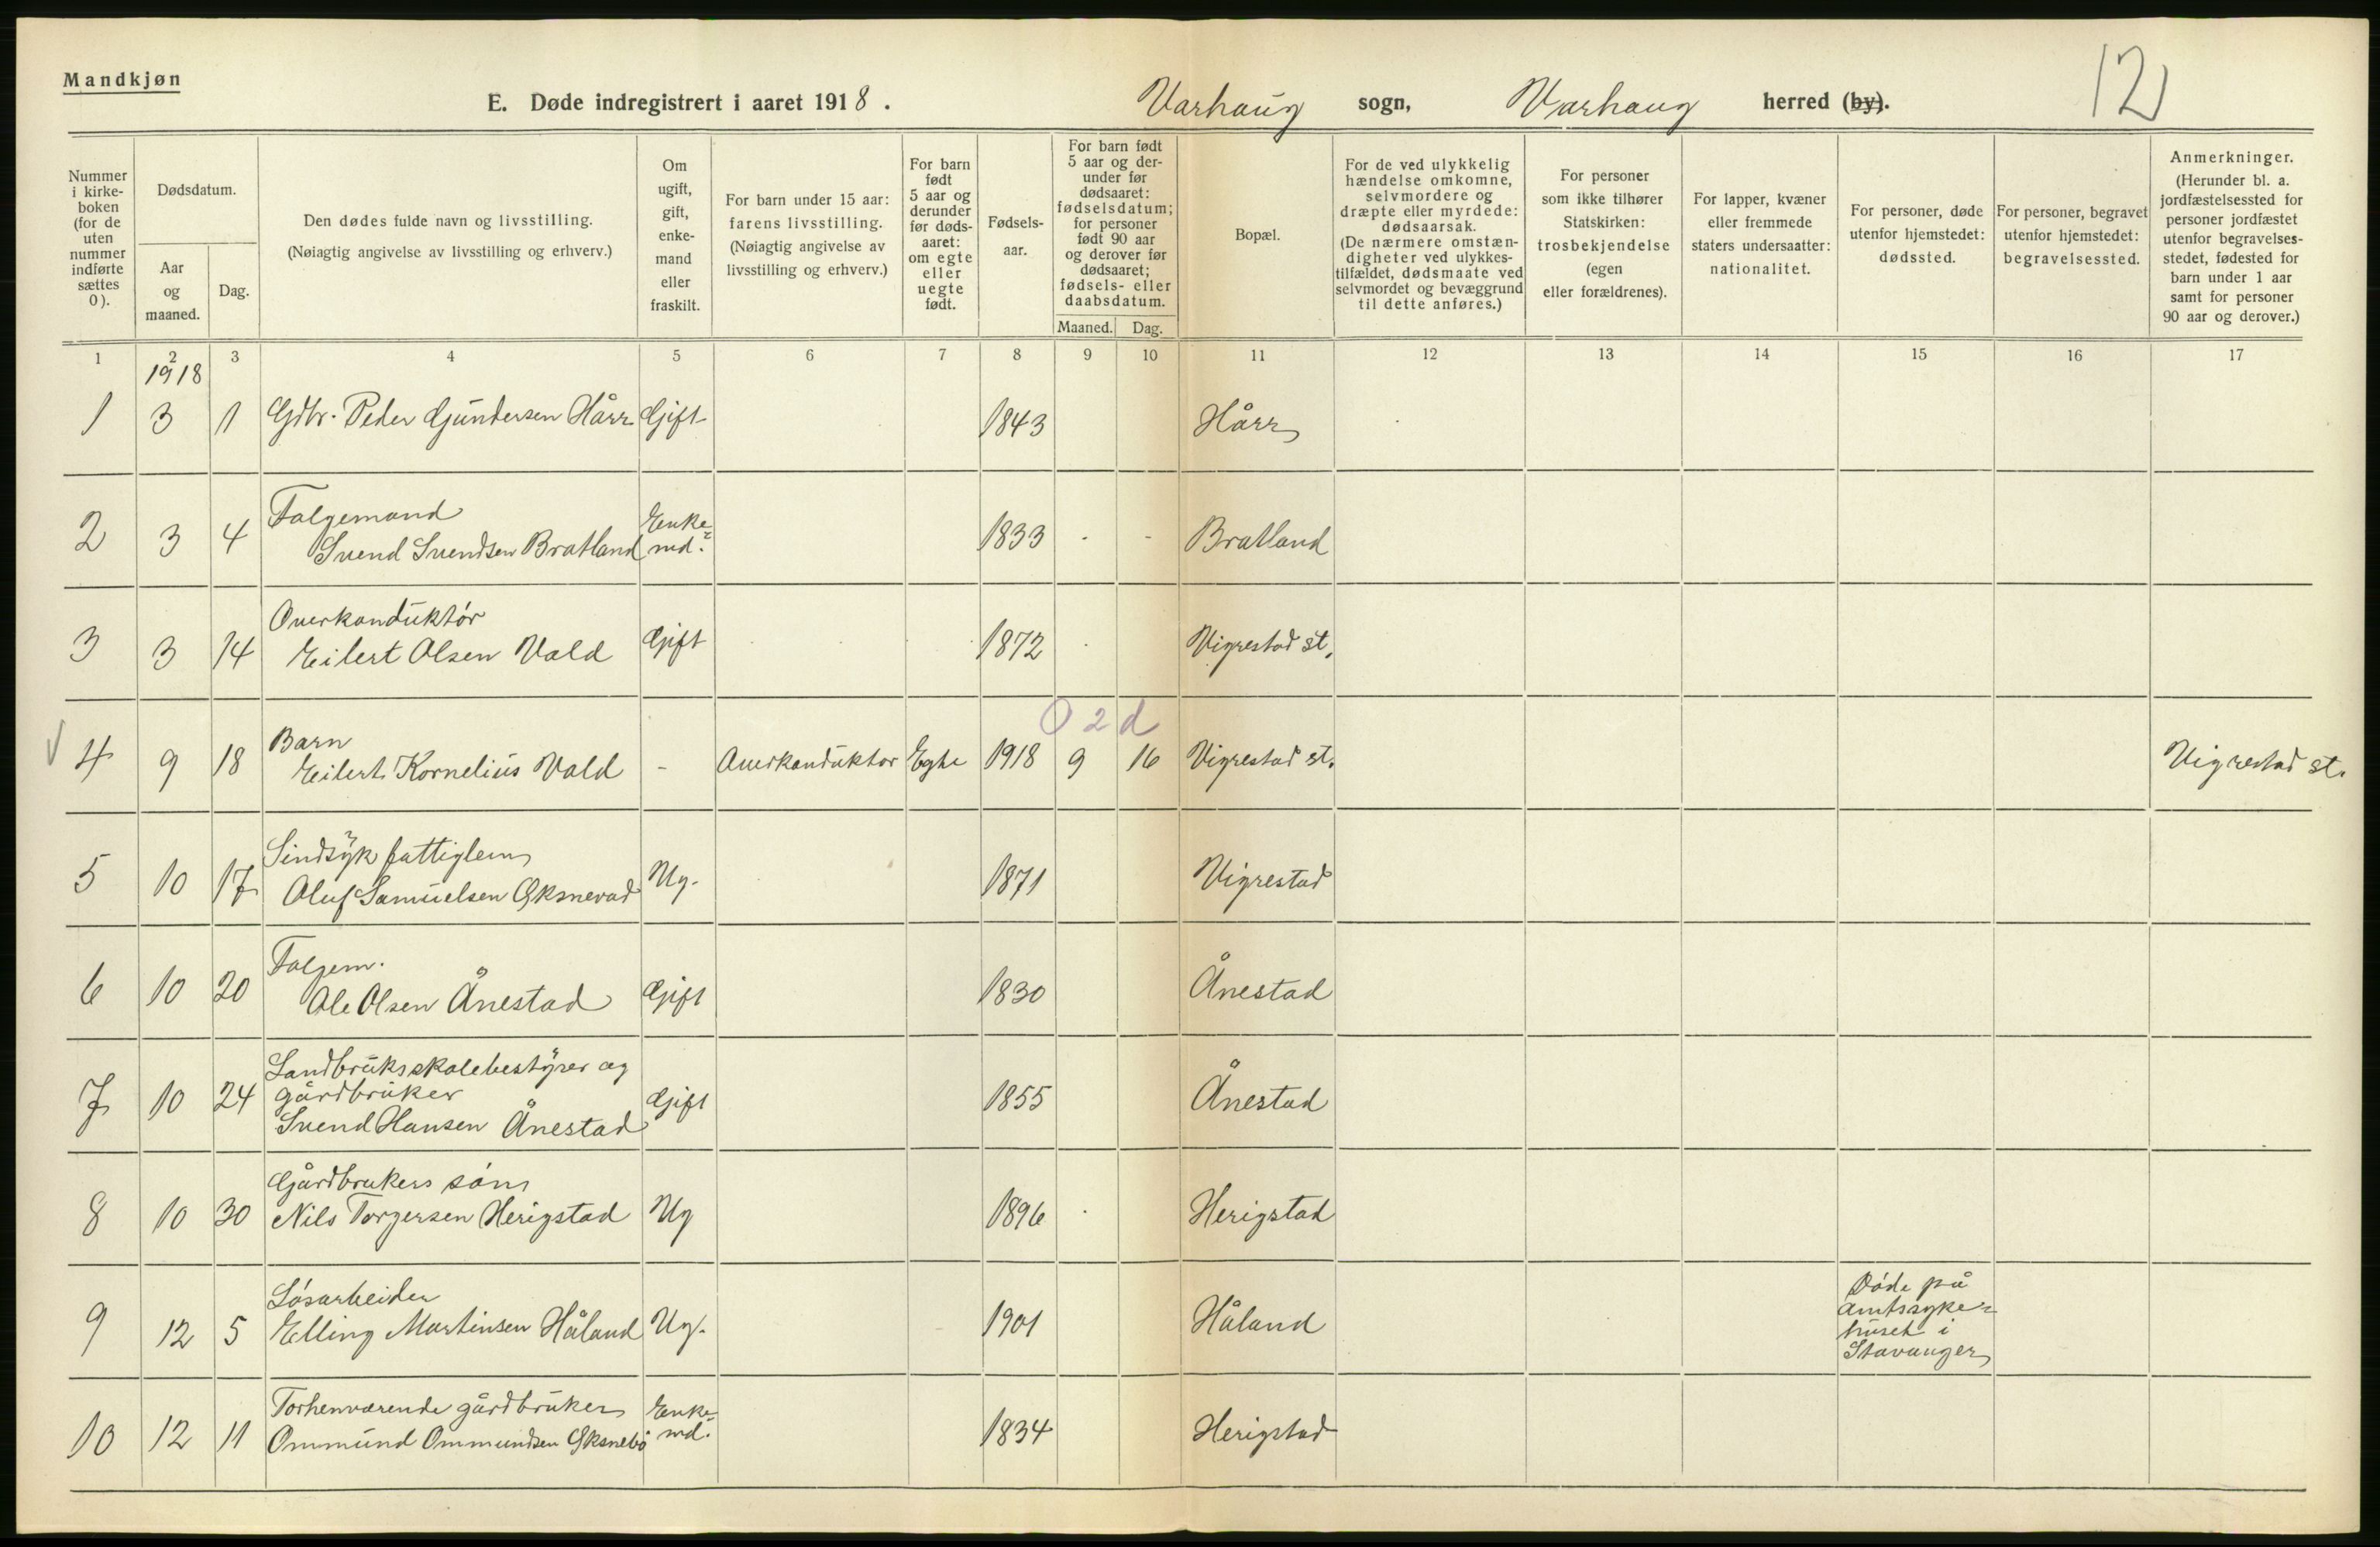 Mandkjøn
E. Døde indregistrert i aaret 1918.
Varhaug sogn, Varhaug herred (by).
12
Nummer i kirke-boken (for de uten nummer indførte sættes 0).
Dødsdatum.
Aar og maaned.
Dag.
Den dødes fulde navn og livsstilling.
(Nøiagtig angivelse av livsstilling og erhverv.)
Om ugift, gift, enke-mand eller fraskilt.
For barn under 15 aar: farens livsstilling.
(Nøiagtig angivelse av livsstilling og erhverv.)
For barn født 5 aar og derunder før døds-aaret: om egte eller uegte født.
Fødsels-aar.
For barn født 5 aar og der-under før dødsaaret: fødselsdatum; for personer født 90 aar og derover før dødsaaret; fødsels- eller daabsdatum.
Maaned. Dag.
Bopæl.
For de ved ulykkelig hændelse omkomne, selvmordere og dræpte eller myrdede: dødsaarsak.
(De nærmere omstæn-digheter ved ulykkes-tilfældet, dødsmaate ved selvmordet og bevæggrund til dette anføres.)
For personer som ikke tilhører Statskirken: trosbekjendelse (egen eller forældrenes).
For lapper, kvæner eller fremmede staters undersaatter: nationalitet.
For personer, døde utenfor hjemstedet: dødssted.
For personer, begravet utenfor hjemstedet: begravelsessted.
Anmerkninger.
(Herunder bl. a. jordfæstelsessted for personer jordfæstet utenfor begravelses-stedet, fødested for barn under 1 aar samt for personer 90 aar og derover.)
1 2 3 4 5 6 7 8 9 10 11 12 13 14 15 16 17
1918
1 3 1 Gdbr. Peder Gundersen Hårr Gift 1843 Hårr
2 3 4 Folgemand
Svend Svendsen Bratland Enkemd. 1833 - - Bratland
3 3 14 Overkonduktór
Eilert Olsen Vold Gift 1872 Vigrestad st.
0 2 d
4 9 18 Barn
Eilert Kornelius Vold - Overkonduktor Egte 1918 9 16 Vigrestad st. Vigrestad st.
5 10 17 Sindsÿk fattiglem
Oluf Samuelsen Oksnevad Ug. 1871 Vigrestad
6 10 20 Folgem.
Ole Olsen Ånestad Gift 1830 Ånestad
7 10 24 Landbruksskolebestÿrer og
gårdbruker
Svend Hansen Ånestad Gift 1855 Ånestad
8 10 30 Gårdbrukers són
Nils Torgersen Herigstad Ug 1896 Herigstad
9 12 5 Lósarbeider
Elling Martinsen Håland Ug. 1901 Håland Dóde på
amtssyke-
huset i
Stavanger
10 12 11 Forhenværende gårdbruker
Ommund Ommundsen Enkemd. 1834 Herigstad